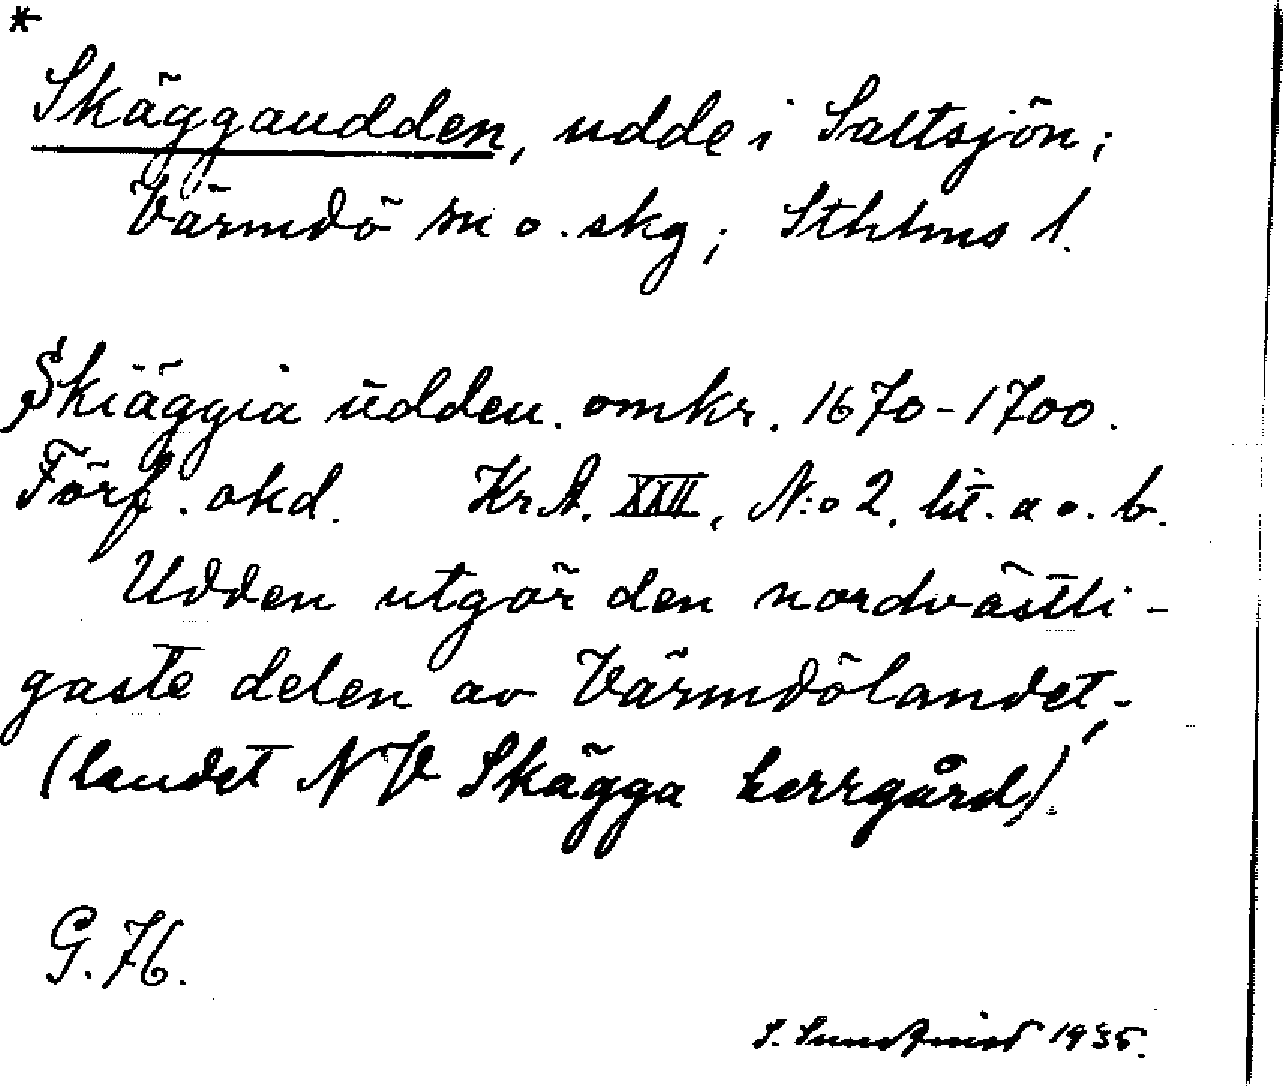 *
Skäggaudden, udde i Saltsjön;
Värmdö sn o. skg; Sthlms l.
Skiäggia üdden. omkr. 1670-1700.
Förf. okd. KrA. XXII, N:o 2. lit. a o. b.
Udden utgör den nordvästli-
gaste delen av Värmdölandet,-
(landet NV Skägga herrgård).
G. 76.
S. 1935.